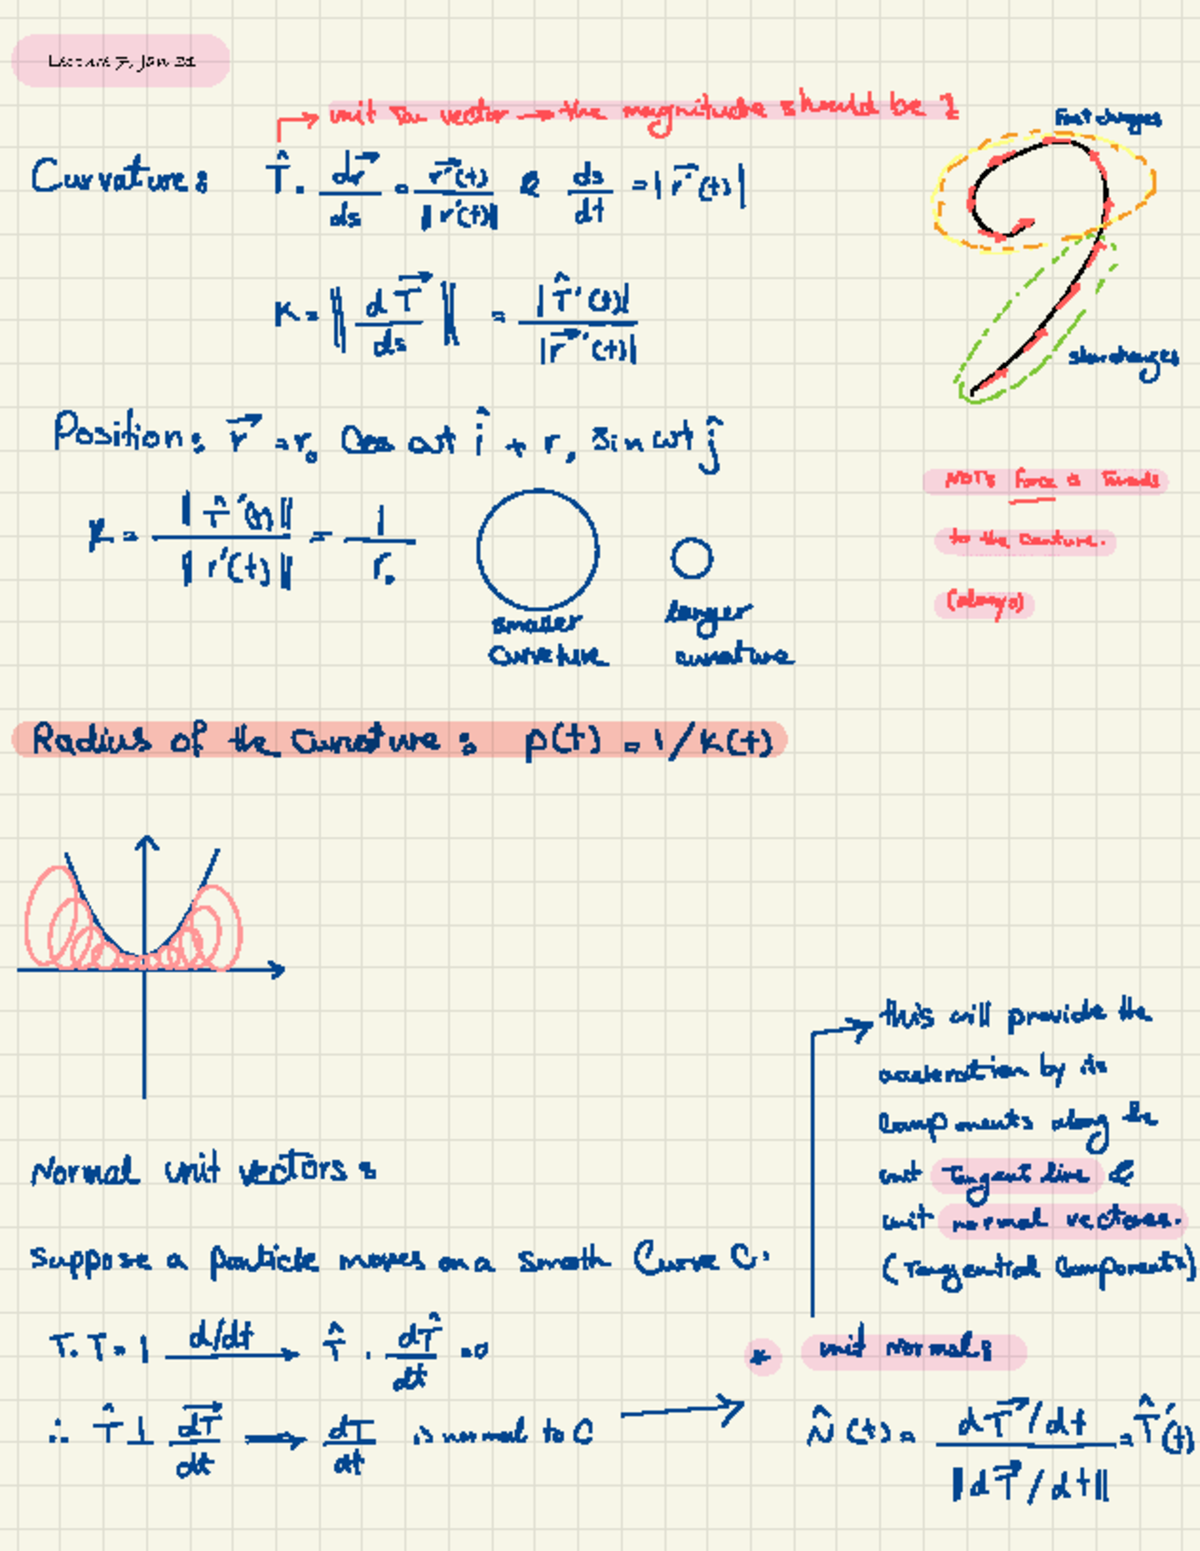 Lecture 7, Jan 21
unit tan vector → the magnitude should be 1
Fast changes
Curvature: T̂ = dr⃗/ds = r⃗'(t)/‖r'(t)‖ & ds/dt = |r⃗'(t)|
K = ‖dT⃗/ds‖ = |T̂'(t)|/|r⃗'(t)|
slow changes
Position: r⃗ = r₀ Cos ωt î + r₀ sin ωt ĵ
NOTE Force is Towards
to the Centure.
(always)
K = ‖T̂'(t)‖/‖r'(t)‖ = 1/r₀
smaller
Curveture
larger
curvature
Radius of the Curvature: ρ(t) = 1/K(t)
this will provide the
acceleration by its
Components along the
unit Tangent line &
unit normal vectores.
(Tangential Components)
Normal unit vectors:
Suppose a particle moves on a smooth Curve C.
T. T = 1 d/dt → T̂ . dT̂/dt = 0
* unit normal:
∴ T̂ ⊥ dT⃗/dt → dT/dt is normal to C →
N̂(t) = dT⃗/dt / ‖dT⃗/dt‖ = T̂'(t)